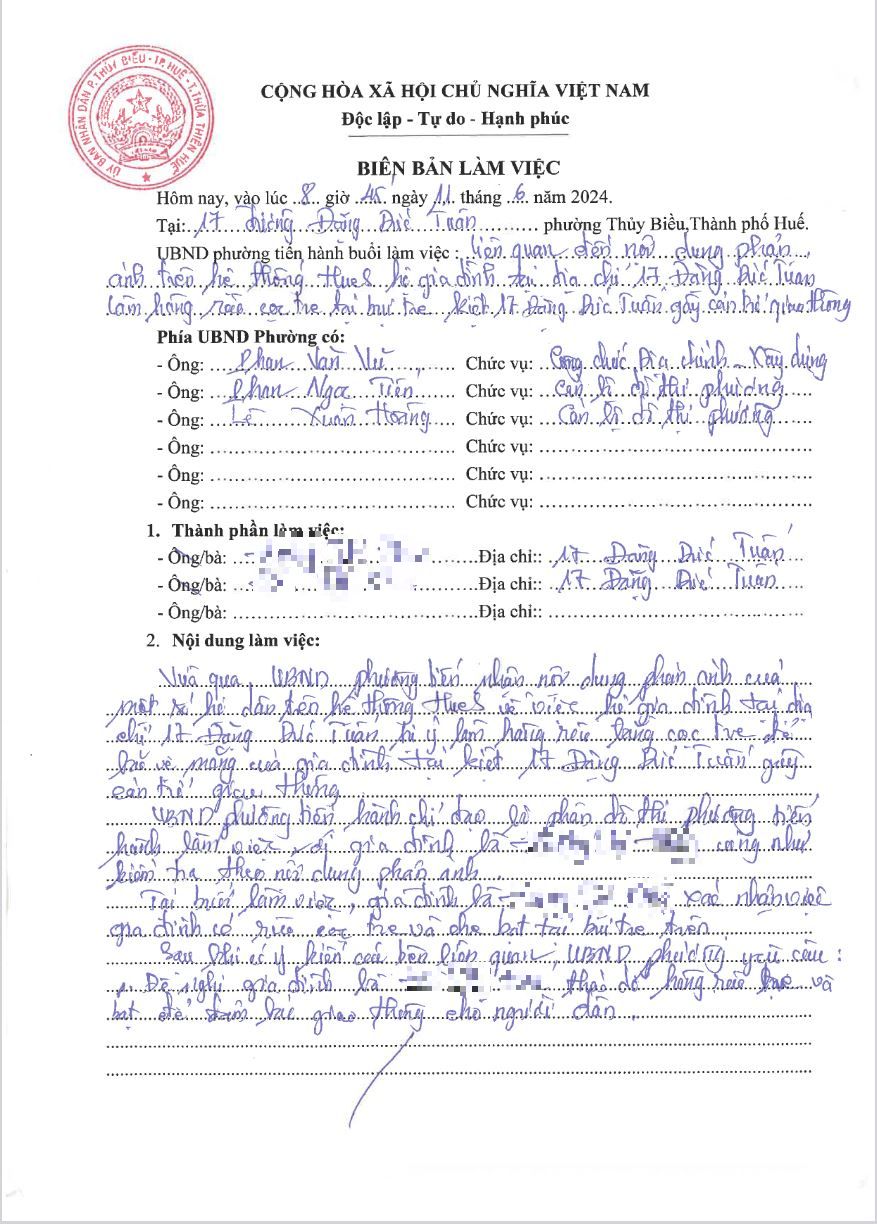 ỦY BAN NHÂN DÂN P. THỦY BIỀU - TP. HUẾ - T. THỪA THIÊN HUẾ
CỘNG HÒA XÃ HỘI CHỦ NGHĨA VIỆT NAM
Độc lập - Tự do - Hạnh phúc
BIÊN BẢN LÀM VIỆC
Hôm nay, vào lúc 8 giờ 45 ngày 11 tháng 6 năm 2024.
Tại: 17 đường Đặng Đức Tuấn phường Thủy Biều,Thành phố Huế.
UBND phường tiến hành buổi làm việc : liên quan đến nội dung phản
ánh trên hệ thống HueS hộ gia đình tại địa chỉ 17 Đặng Đức Tuấn
làm hàng rào cọc tre tại bụi tre kiệt 17 Đặng Đức Tuấn gây cản trở giao thông
Phía UBND Phường có:
- Ông: Phan Văn Vũ Chức vụ: Công chức Địa chính - Xây dựng
- Ông: Phan Ngọc Tiến Chức vụ: Cán bộ đô thị phường
- Ông: Lê Xuân Hoàng Chức vụ: Cán bộ đô thị phường
- Ông: Chức vụ:
- Ông: Chức vụ:
- Ông: Chức vụ:
1. Thành phần làm việc:
- Ông/bà: Địa chỉ:: 17 Đặng Đức Tuấn
- Ông/bà: Địa chỉ:: 17 Đặng Đức Tuấn
- Ông/bà: Địa chỉ::
2. Nội dung làm việc:
Vừa qua, UBND phường tiếp nhận nội dung phản ánh của
một số hộ dân trên hệ thống HueS về việc hộ gia đình tại địa
chỉ 17 Đặng Đức Tuấn, tự ý làm hàng rào bằng cọc tre để
bảo vệ măng của gia đình tại kiệt 17 Đặng Đức Tuấn gây
cản trở giao thông
UBND phường tiến hành chỉ đạo bộ phận đô thị phường tiến
hành làm việc với gia đình bà cũng như
kiểm tra theo nội dung phản ánh.
Tại buổi làm việc, gia đình bà xác nhận việc
gia đình có rào cọc tre và che bạt tại bụi tre trên
Sau khi có ý kiến các bên liên quan, UBND phường yêu cầu:
1. Đề nghị gia đình bà tháo dỡ hàng rào và
bạt để đảm bảo giao thông cho người dân.